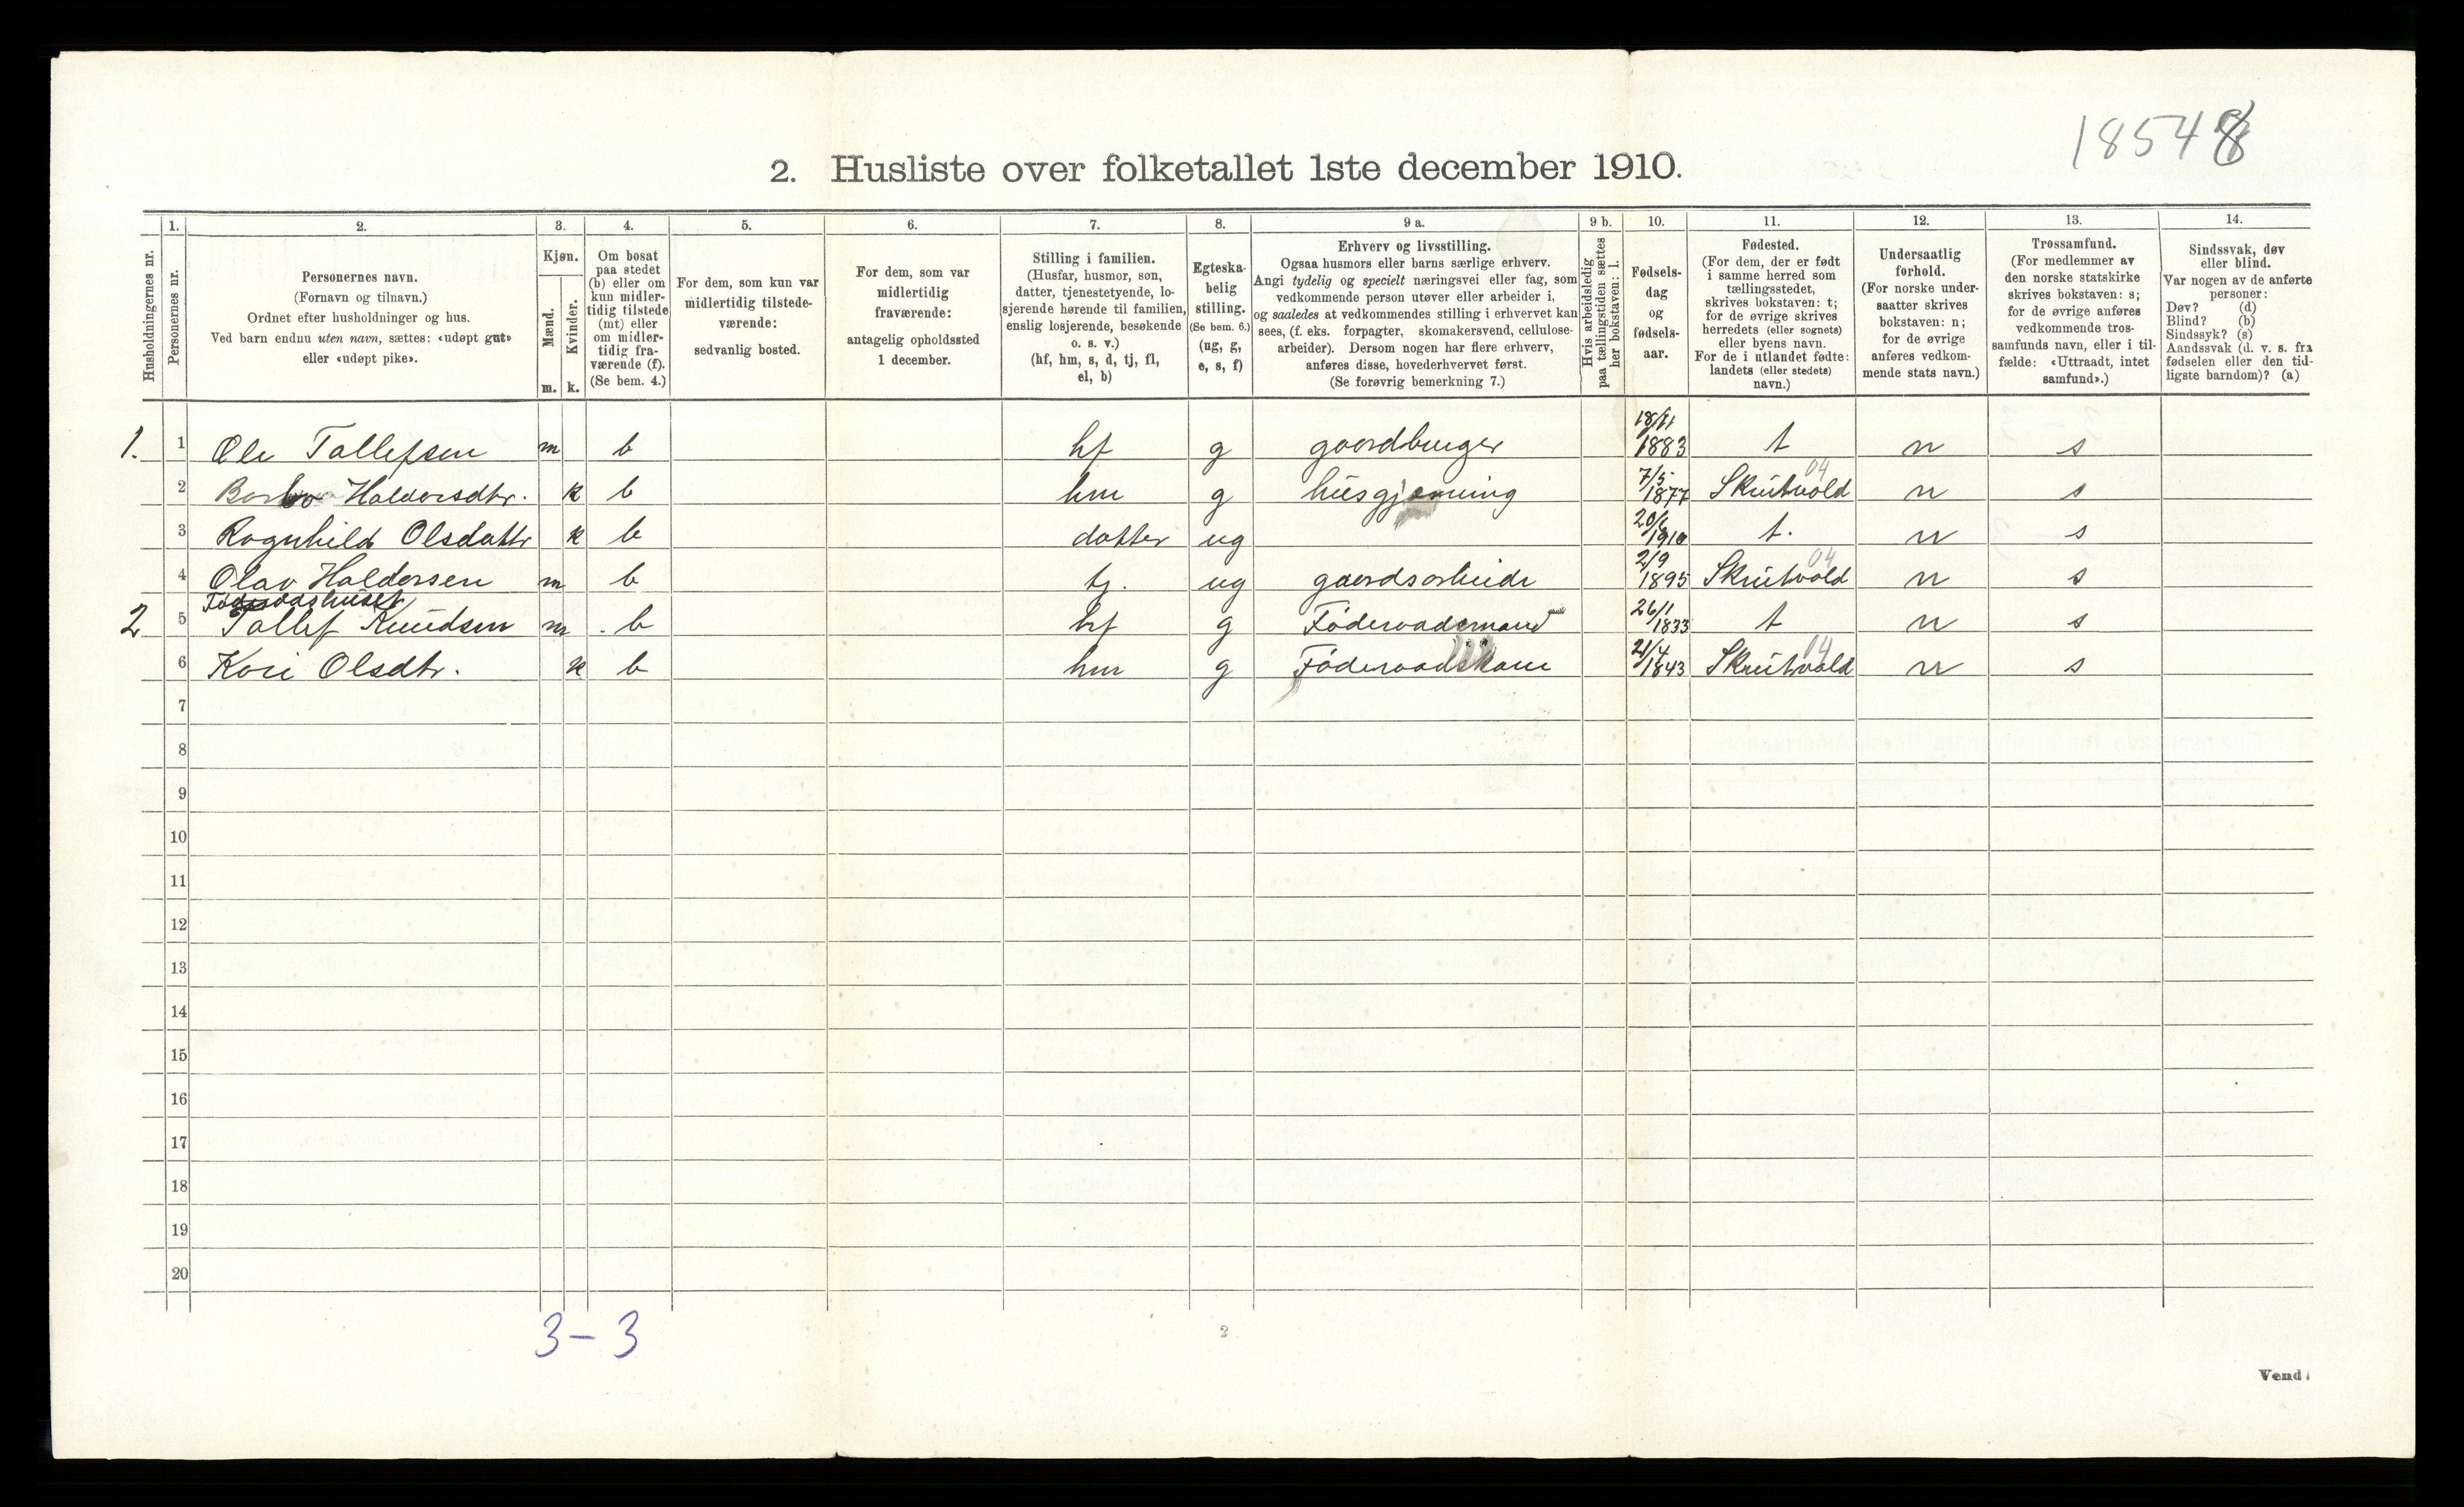 18548
2. Husliste over folketallet 1ste december 1910.
Husholdningernes nr.
1.
Personernes nr.
2.
Personernes navn.
(Fornavn og tilnavn.)
Ordnet efter husholdninger og hus.
Ved barn endnu uten navn, sættes: «udøpt gut»
eller «udøpt pike».
3.
Kjøn.
Mænd.
m.
Kvinder.
k.
4.
Om bosat
paa stedet
(b) eller om
kun midler-
tidig tilstede
(mt) eller
om midler-
tidig fra-
værende (f).
(Se bem. 4.)
5.
For dem, som kun var
midlertidig tilstede-
værende:
sedvanlig bosted.
6.
For dem, som var
midlertidig
fraværende:
antagelig opholdssted
1 december.
7.
Stilling i familien.
(Husfar, husmor, søn,
datter, tjenestetyende, lo-
sjerende hørende til familien,
enslig losjerende, besøkende
o. s. v.)
(hf, hm, s, d, tj, fl,
el, b)
8.
Egteska-
belig
stilling.
(Se bem. 6.)
(ug, g,
e, s, f)
9 a.
Erhverv og livsstilling.
Ogsaa husmors eller barns særlige erhverv.
Angi tydelig og specielt næringsvei eller fag, som
vedkommende person utøver eller arbeider i,
og saaledes at vedkommendes stilling i erhvervet kan
sees, (f. eks. forpagter, skomakersvend, cellulose-
arbeider). Dersom nogen har flere erhverv,
anføres disse, hovederhvervet først.
(Se forøvrig bemerkning 7.)
9 b.
Hvis arbeidsledig
paa tællingstiden sættes
her bokstaven: l.
10.
Fødsels-
dag
og
fødsels-
aar.
11.
Fødested.
(For dem, der er født
i samme herred som
tællingsstedet,
skrives bokstaven: t;
for de øvrige skrives
herredets (eller sognets)
eller byens navn.
For de i utlandet fødte:
landets (eller stedets)
navn.)
12.
Undersaatlig
forhold.
(For norske under-
saatter skrives
bokstaven: n;
for de øvrige
anføres vedkom-
mende stats navn.)
13.
Trossamfund.
(For medlemmer av
den norske statskirke
skrives bokstaven: s;
for de øvrige anføres
vedkommende tros-
samfunds navn, eller i til-
fælde: «Uttraadt, intet
samfund».)
14.
Sindssvak, døv
eller blind.
Var nogen av de anførte
personer:
Døv? (d)
Blind? (b)
Sindssyk? (s)
Aandssvak (d. v. s. fra
fødselen eller den tid-
ligste barndom)? (a)
1. 1 Ole Tallefsen m b hf g gaardbruger 18/11 1883 t n s
2 Haldorsdtr. k b hm g husgjerning 7/5 1877 Skrutvold 04 n s
3 Ragnhild Olsdattr k b datter ug 20/6 1910 t. n s
4 Olav Haldorsen m b tj. ug gaardsarbeide 2/9 1895 Skrutvold 04 n s
Føderaadshuset
2 5 Tallef Knudsen m b hf g Føderaadsmand 26/1 1833 t n s
6 Kari Olsdtr. k b hm g Føderaadskone 21/4 1843 Skrutvold 04 n s
7
8
9
10
11
12
13
14
15
16
17
18
19
20
3 – 3
2
Vend!